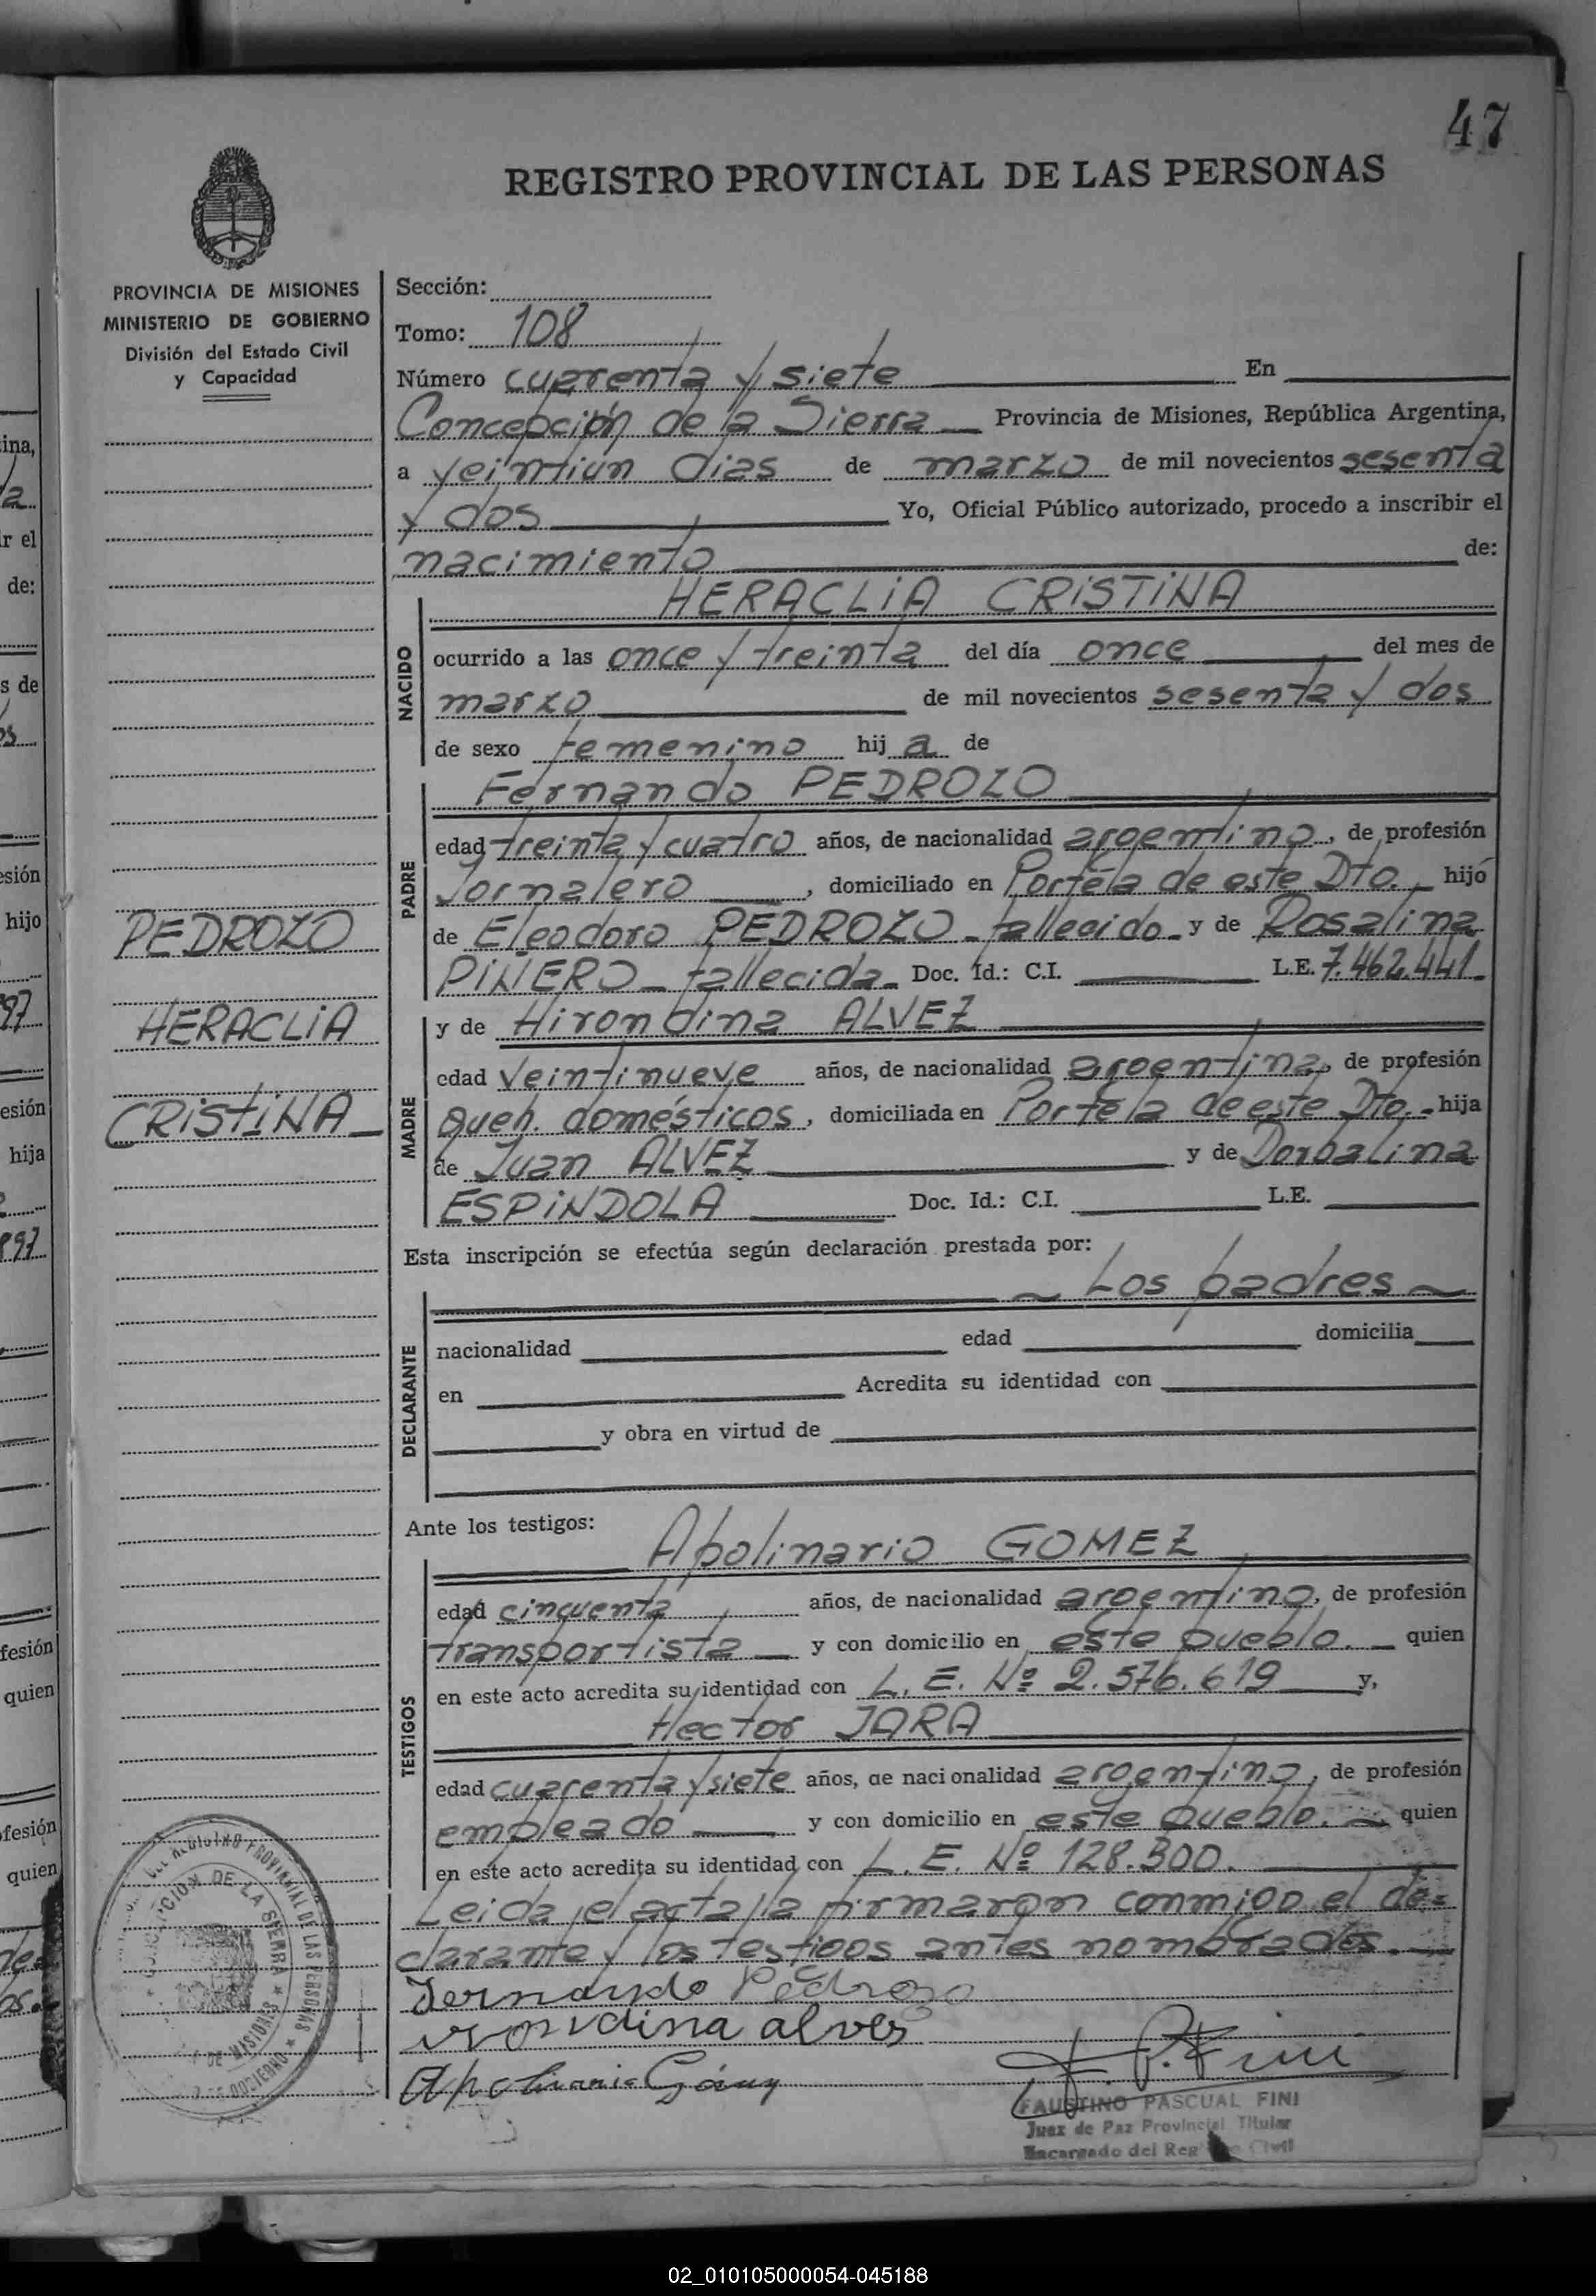 47
REGISTRO PROVINCIAL DE LAS PERSONAS
PROVINCIA DE MISIONES
MINISTERIO DE GOBIERNO
División del Estado Civil
y Capacidad
Sección:
Tomo: 108
Número cuarenta y siete En
Concepción de la Sierra Provincia de Misiones, República Argentina,
a veintiun dias de marzo de mil novecientos sesenta
y dos Yo, Oficial Público autorizado, procedo a inscribir el
nacimiento de:
HERACLIA CRISTINA
NACIDO
ocurrido a las once y treinta del día once del mes de
marzo de mil novecientos sesenta y dos
de sexo femenino hij a de
Fernando PEDROZO
PADRE
edad treinta y cuatro años, de nacionalidad argentino, de profesión
Jornalero, domiciliado en Portela de este Dto. hijo
de Eleodoro PEDROZO - fallecido - y de Rosalina
PIÑERO - fallecida - Doc. Id.: C.I. L.E. 7.462.441
PEDROZO
HERACLIA
CRISTINA
y de Hirondina ALVEZ
MADRE
edad veintinueve años, de nacionalidad argentina, de profesión
Queh. domésticos, domiciliada en Portela de este Dto. - hija
de Juan ALVEZ y de Dorbalina
ESPINDOLA Doc. Id.: C.I. L.E.
Esta inscripción se efectúa según declaración prestada por:
Los padres
DECLARANTE
nacionalidad edad domicilia
en Acredita su identidad con
y obra en virtud de
Ante los testigos:
Apolinario GOMEZ
TESTIGOS
edad cincuenta años, de nacionalidad argentino, de profesión
transportista y con domicilio en este pueblo. quien
en este acto acredita su identidad con L. E. Nº 2.576.619 y,
Hector JARA
edad cuarenta y siete años, de nacionalidad argentino, de profesión
empleado y con domicilio en este pueblo. quien
en este acto acredita su identidad con L. E. Nº 128.300.
Leida el acta la firmaron conmigo el de=
clarante y los testigos antes nombrados.
Fernando Pedrozo
irondina alves
Apolinario Gómez
F. P. Fini
FAUSTINO PASCUAL FINI
Juez de Paz Provincial Titular
Encargado del Reg Civil
02_010105000054-045188